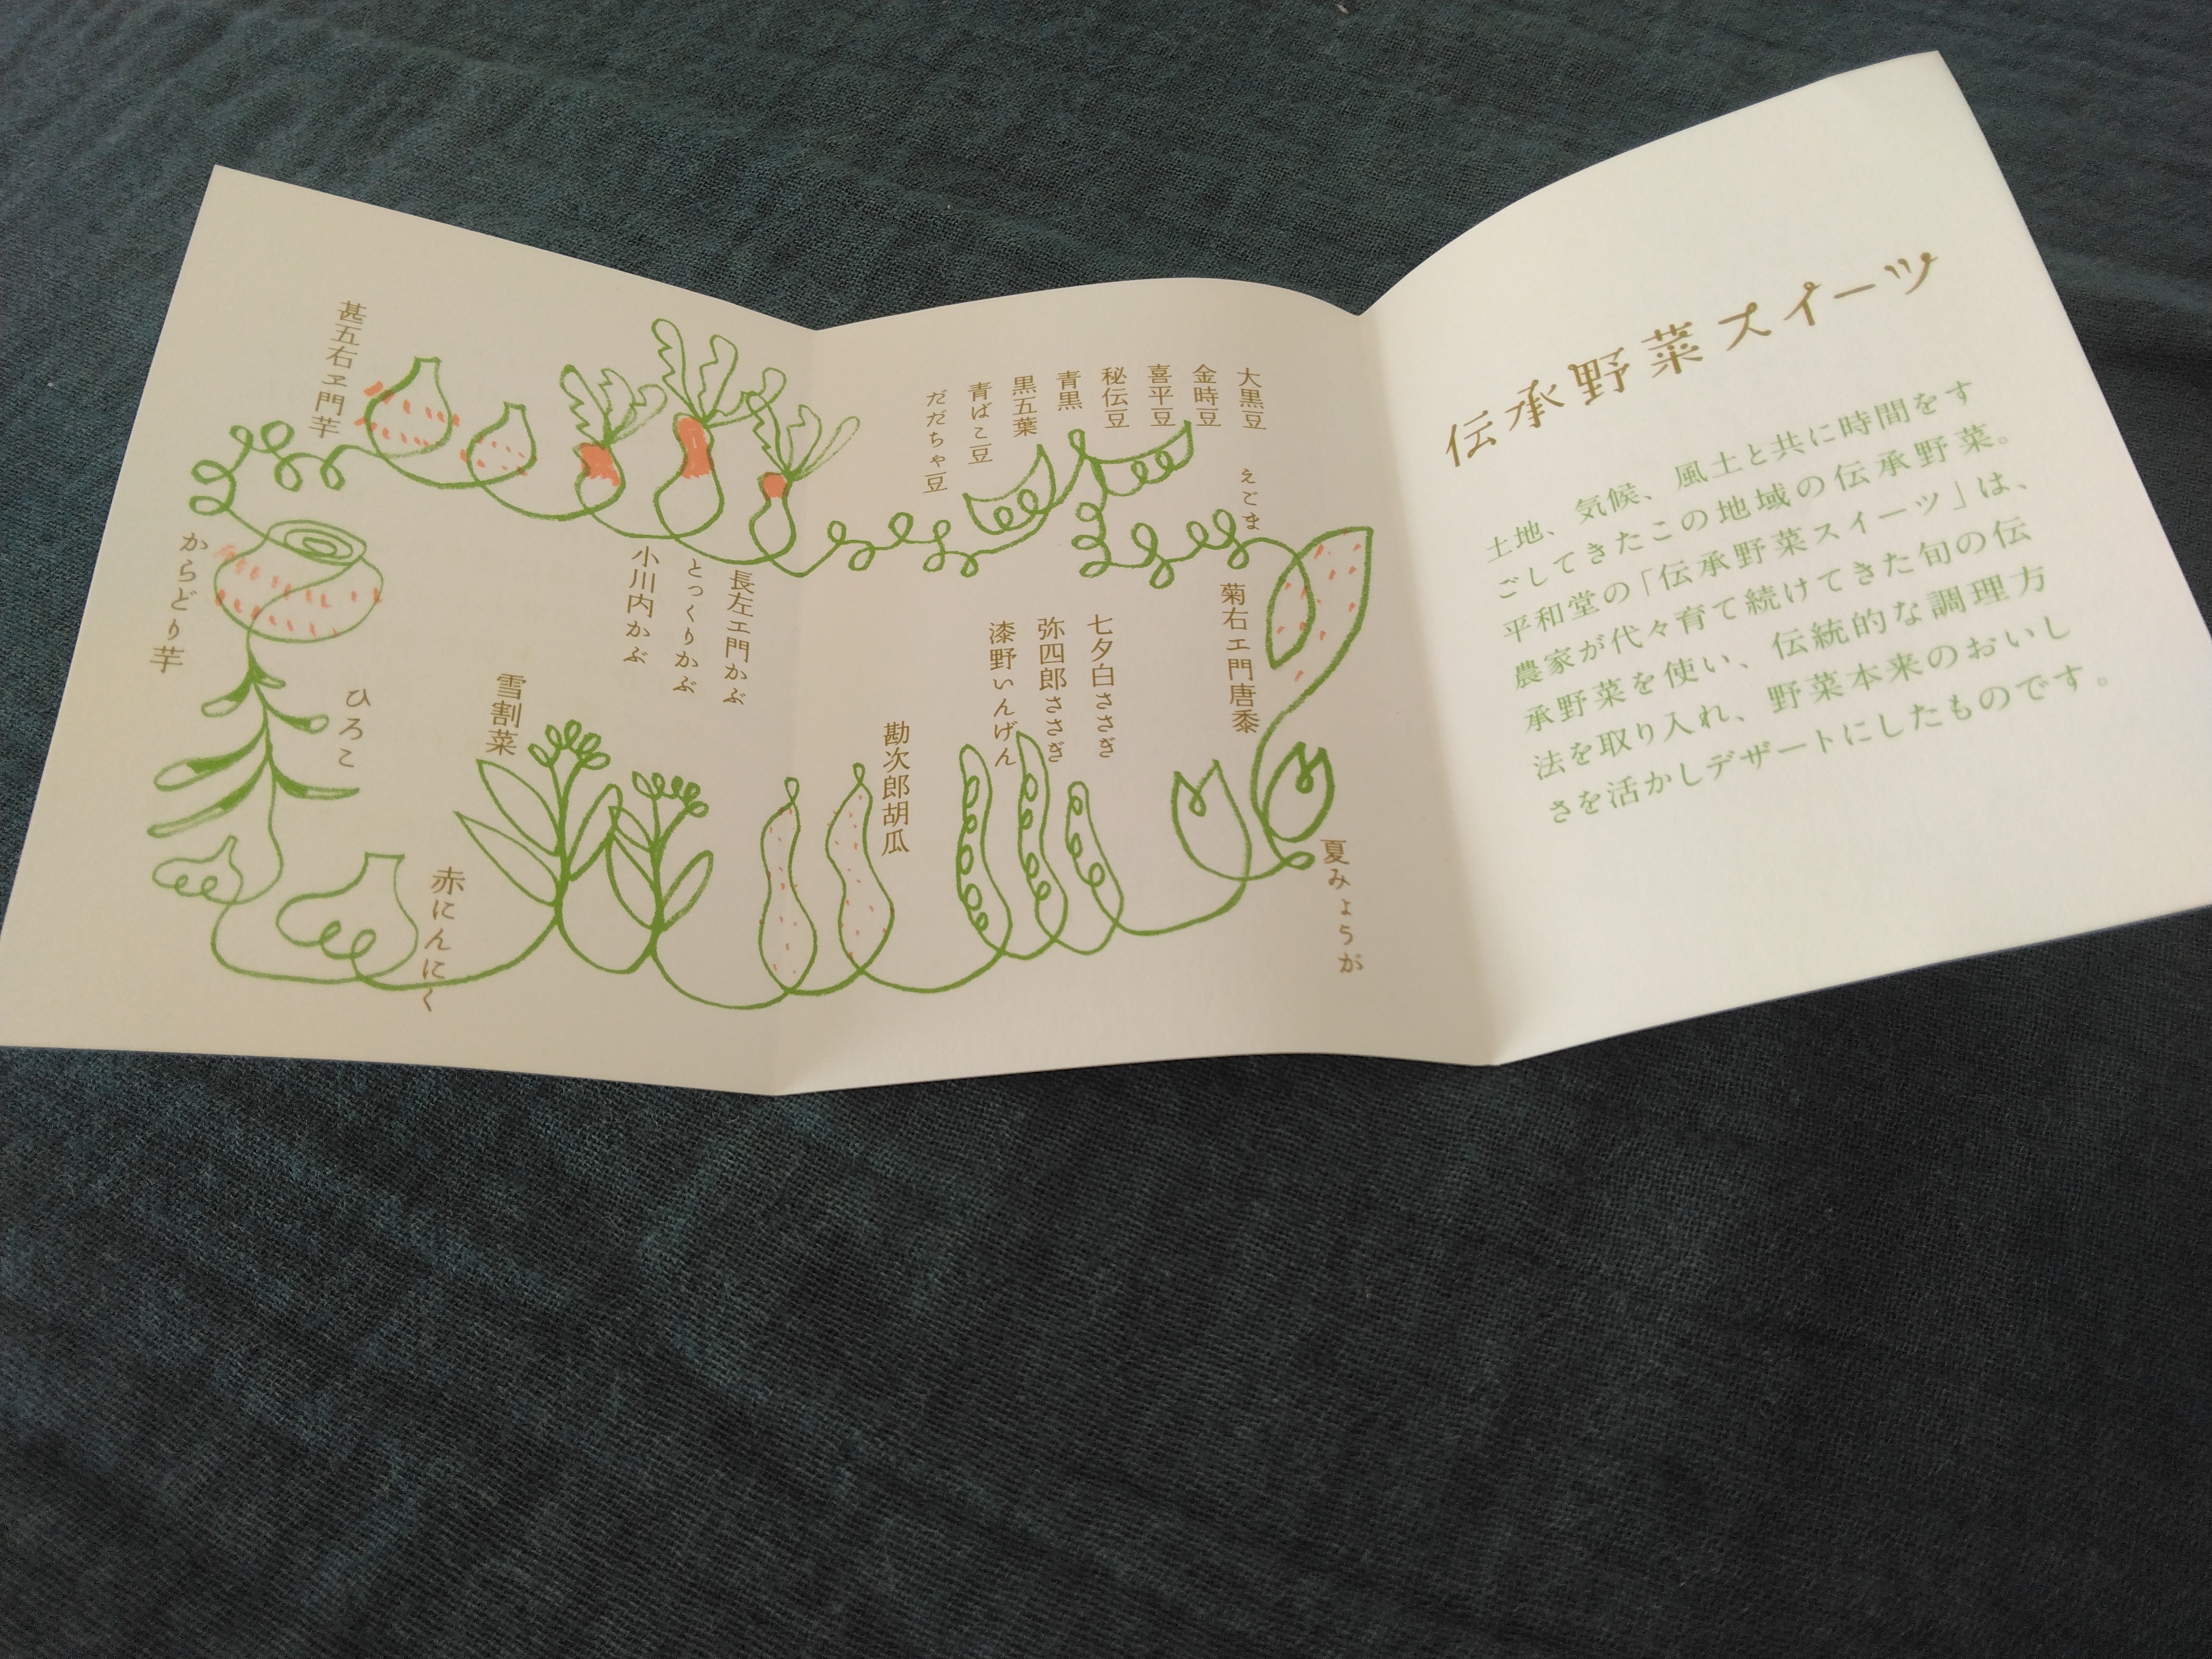 伝承野菜スイーツ
土地、気候、風土と共に時間をす
ごしてきたこの地域の伝承野菜。
平和堂の「伝承野菜スイーツ」は、
農家が代々育て続けてきた旬の伝
承野菜を使い、伝統的な調理方
法を取り入れ、野菜本来のおいし
さを活かしデザートにしたものです。
大黒豆
金時豆
喜平豆
秘伝豆
青黒
黒五葉
青ばこ豆
だだちゃ豆
えごま
菊右エ門唐黍
夏みょうが
七夕白ささぎ
弥四郎ささぎ
漆野いんげん
勘次郎胡瓜
長左エ門かぶ
とっくりかぶ
小川内かぶ
雪割菜
甚五右ヱ門芋
からどり芋
ひろこ
赤にんにく